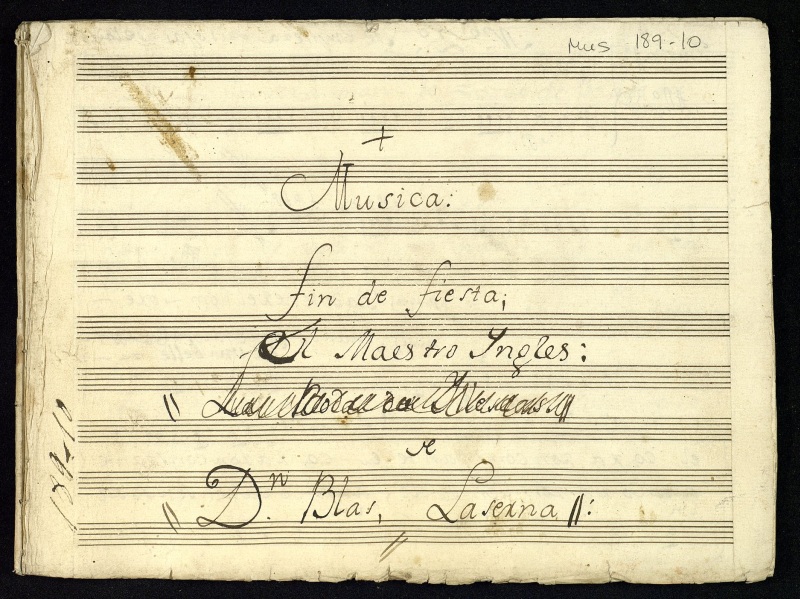 Mus 189-10
+
Musica:
fin de fiesta;
El Maestro Yngles:
de
Dn. Blas, Laserna //:
189-10